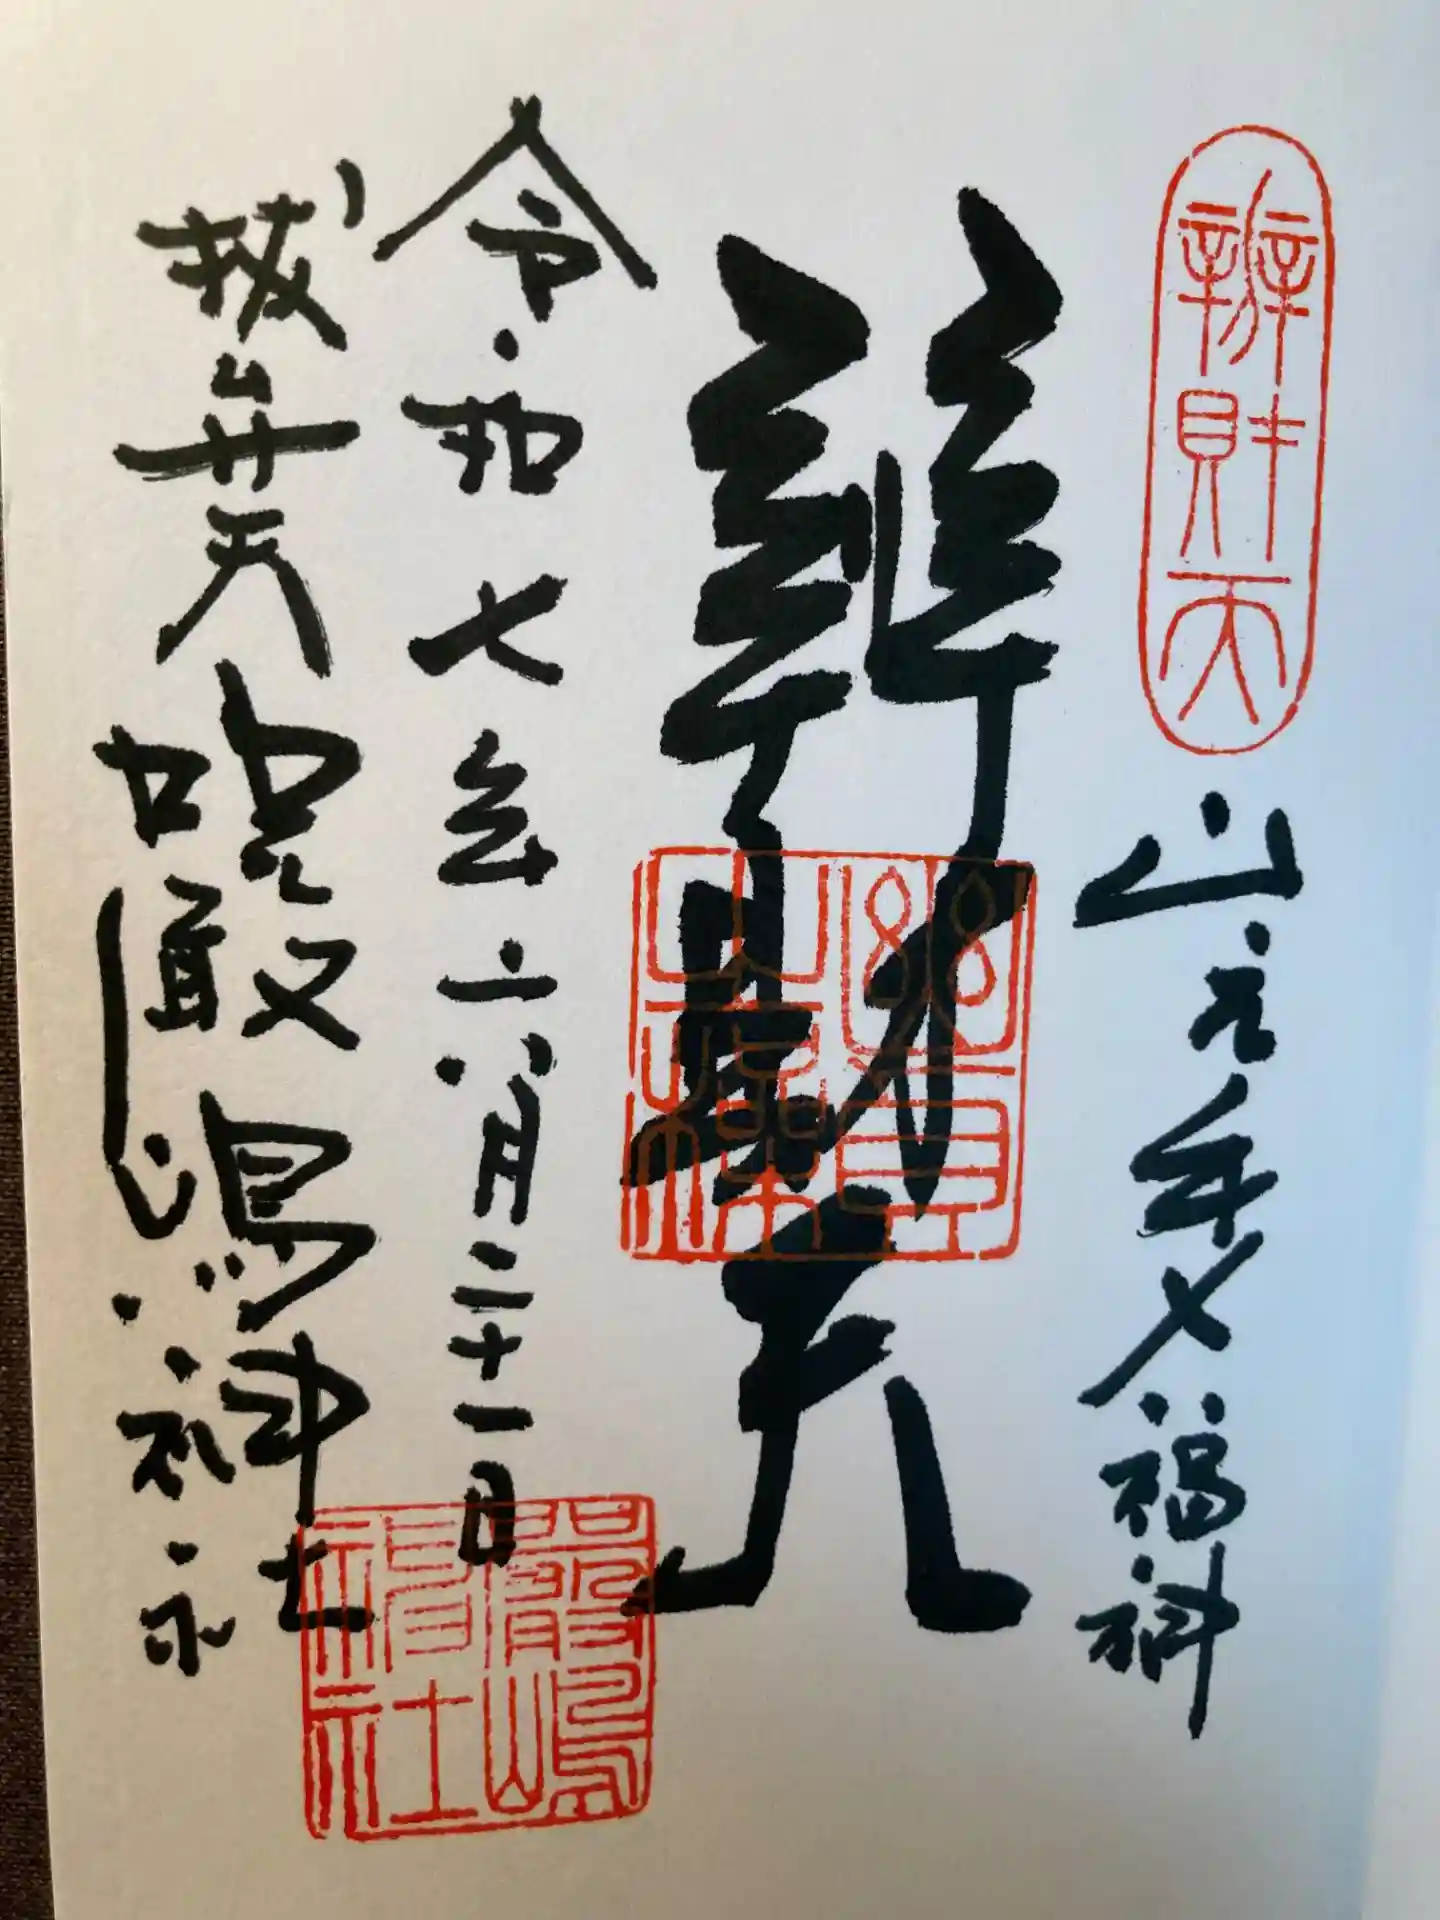 辨財天
山之手七福神
辨財天
令和七年六月二十一日
抜弁天 嚴嶋神社
嚴嶋神社